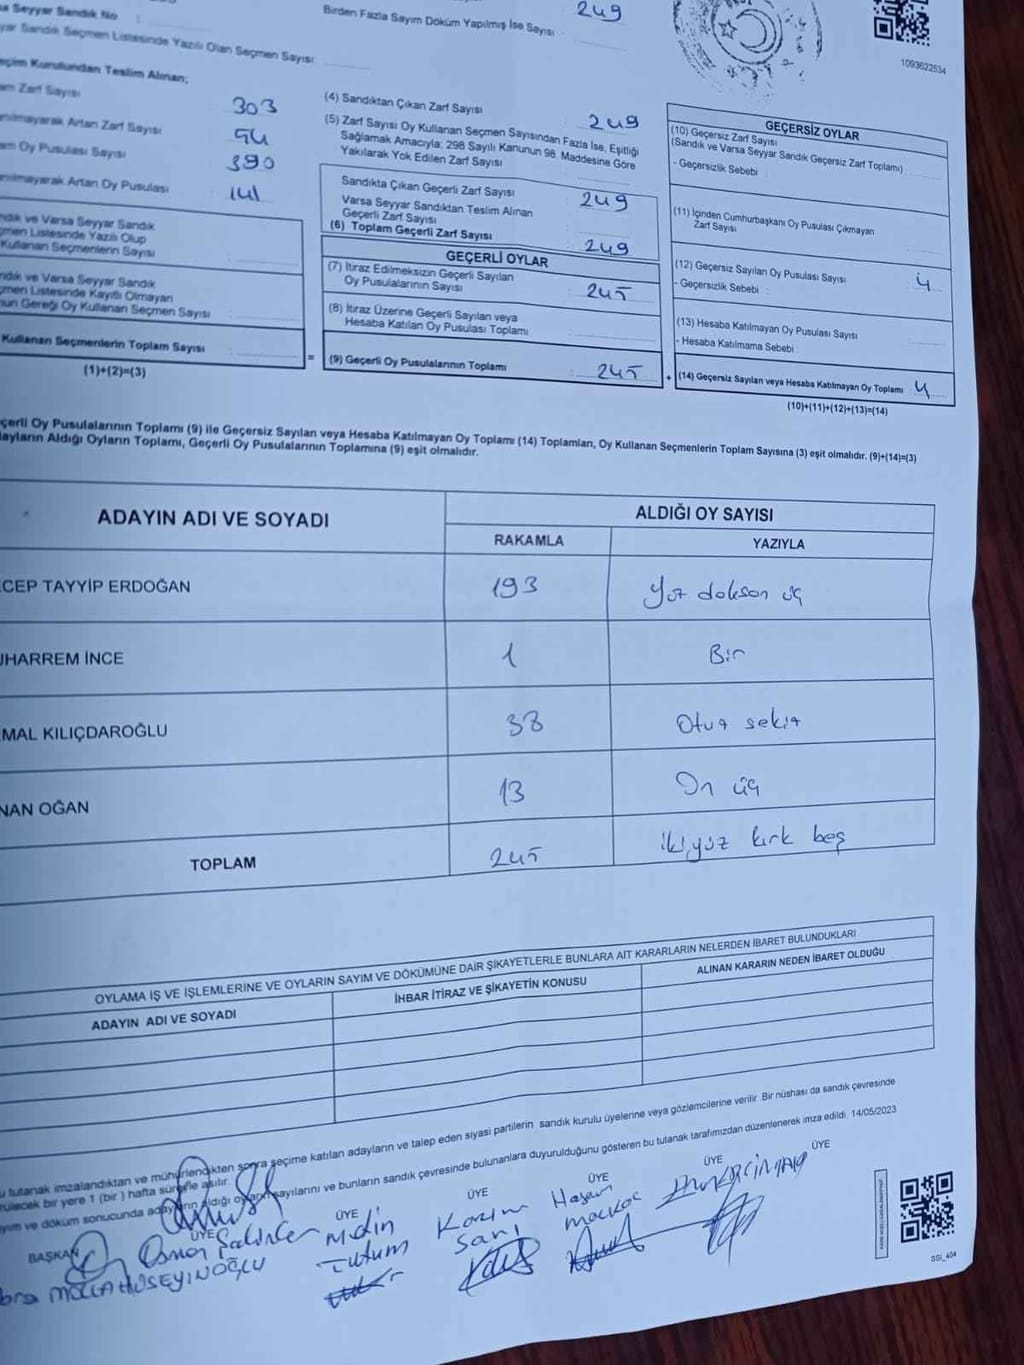 Seyyar Sandık No :
Seyyar Sandık Seçmen Listesinde Yazılı Olan Seçmen Sayısı:
Birden Fazla Sayım Döküm Yapılmış İse Sayısı
249
1093622534
Seçim Kurulundan Teslim Alınan;
Zarf Sayısı 303
Artan Zarf Sayısı 94
Oy Pusulası Sayısı 390
Artan Oy Pusulası 141
(4) Sandıktan Çıkan Zarf Sayısı 249
(5) Zarf Sayısı Oy Kullanan Seçmen Sayısından Fazla İse, Eşitliği
Sağlamak Amacıyla; 298 Sayılı Kanunun 98. Maddesine Göre
Yakılarak Yok Edilen Zarf Sayısı
Sandıkta Çıkan Geçerli Zarf Sayısı 249
Varsa Seyyar Sandıktan Teslim Alınan
Geçerli Zarf Sayısı
(6) Toplam Geçerli Zarf Sayısı 249
ve Varsa Seyyar Sandık
Listesinde Yazılı Olup
Kullanan Seçmenlerin Sayısı
ve Varsa Seyyar Sandık
Listesinde Kayıtlı Olmayan
Gereği Oy Kullanan Seçmen Sayısı :
Kullanan Seçmenlerin Toplam Sayısı :
(1)+(2)=(3)
=
GEÇERLİ OYLAR
(7) İtiraz Edilmeksizin Geçerli Sayılan
Oy Pusulalarının Sayısı : 245
(8) İtiraz Üzerine Geçerli Sayılan veya
Hesaba Katılan Oy Pusulası Toplamı :
(9) Geçerli Oy Pusulalarının Toplamı : 245
+
GEÇERSİZ OYLAR
(10) Geçersiz Zarf Sayısı
(Sandık ve Varsa Seyyar Sandık Geçersiz Zarf Toplamı)
- Geçersizlik Sebebi :
(11) İçinden Cumhurbaşkanı Oy Pusulası Çıkmayan
Zarf Sayısı
(12) Geçersiz Sayılan Oy Pusulası Sayısı 4
- Geçersizlik Sebebi :
(13) Hesaba Katılmayan Oy Pusulası Sayısı
- Hesaba Katılmama Sebebi :
(14) Geçersiz Sayılan veya Hesaba Katılmayan Oy Toplamı 4
(10)+(11)+(12)+(13)=(14)
Oy Pusulalarının Toplamı (9) ile Geçersiz Sayılan veya Hesaba Katılmayan Oy Toplamı (14) Toplamları, Oy Kullanan Seçmenlerin Toplam Sayısına (3) eşit olmalıdır. (9)+(14)=(3)
Aldığı Oyların Toplamı, Geçerli Oy Pusulalarının Toplamına (9) eşit olmalıdır.
ADAYIN ADI VE SOYADI
ALDIĞI OY SAYISI
RAKAMLA YAZIYLA
CEP TAYYİP ERDOĞAN 193 Yüz doksan üç
HARREM İNCE 1 Bir
MAL KILIÇDAROĞLU 38 Otuz sekiz
NAN OĞAN 13 On üç
TOPLAM 245 iki yüz kırk beş
OYLAMA İŞ VE İŞLEMLERİNE VE OYLARIN SAYIM VE DÖKÜMÜNE DAİR ŞİKAYETLERLE BUNLARA AİT KARARLARIN NELERDEN İBARET BULUNDUKLARI
ADAYIN ADI VE SOYADI İHBAR İTİRAZ VE ŞİKAYETİN KONUSU ALINAN KARARIN NEDEN İBARET OLDUĞU
tutanak imzalandıktan ve mühürlendikten sonra seçime katılan adayların ve talep eden siyasi partilerin sandık kurulu üyelerine veya gözlemcilerine verilir. Bir nüshası da sandık çevresinde
bir yere 1 (bir) hafta süreyle asılır.
ve döküm sonucunda adayların aldığı oyların sayılarını ve bunların sandık çevresinde bulunanlara duyurulduğunu gösteren bu tutanak tarafımızdan düzenlenerek imza edildi. 14/05/2023
BAŞKAN ÜYE ÜYE ÜYE ÜYE ÜYE ÜYE
MOLLAHÜSEYİNOĞLU
Osman
Metin
Tutum
Kazım
Sarı
Hasan
SSİ_404